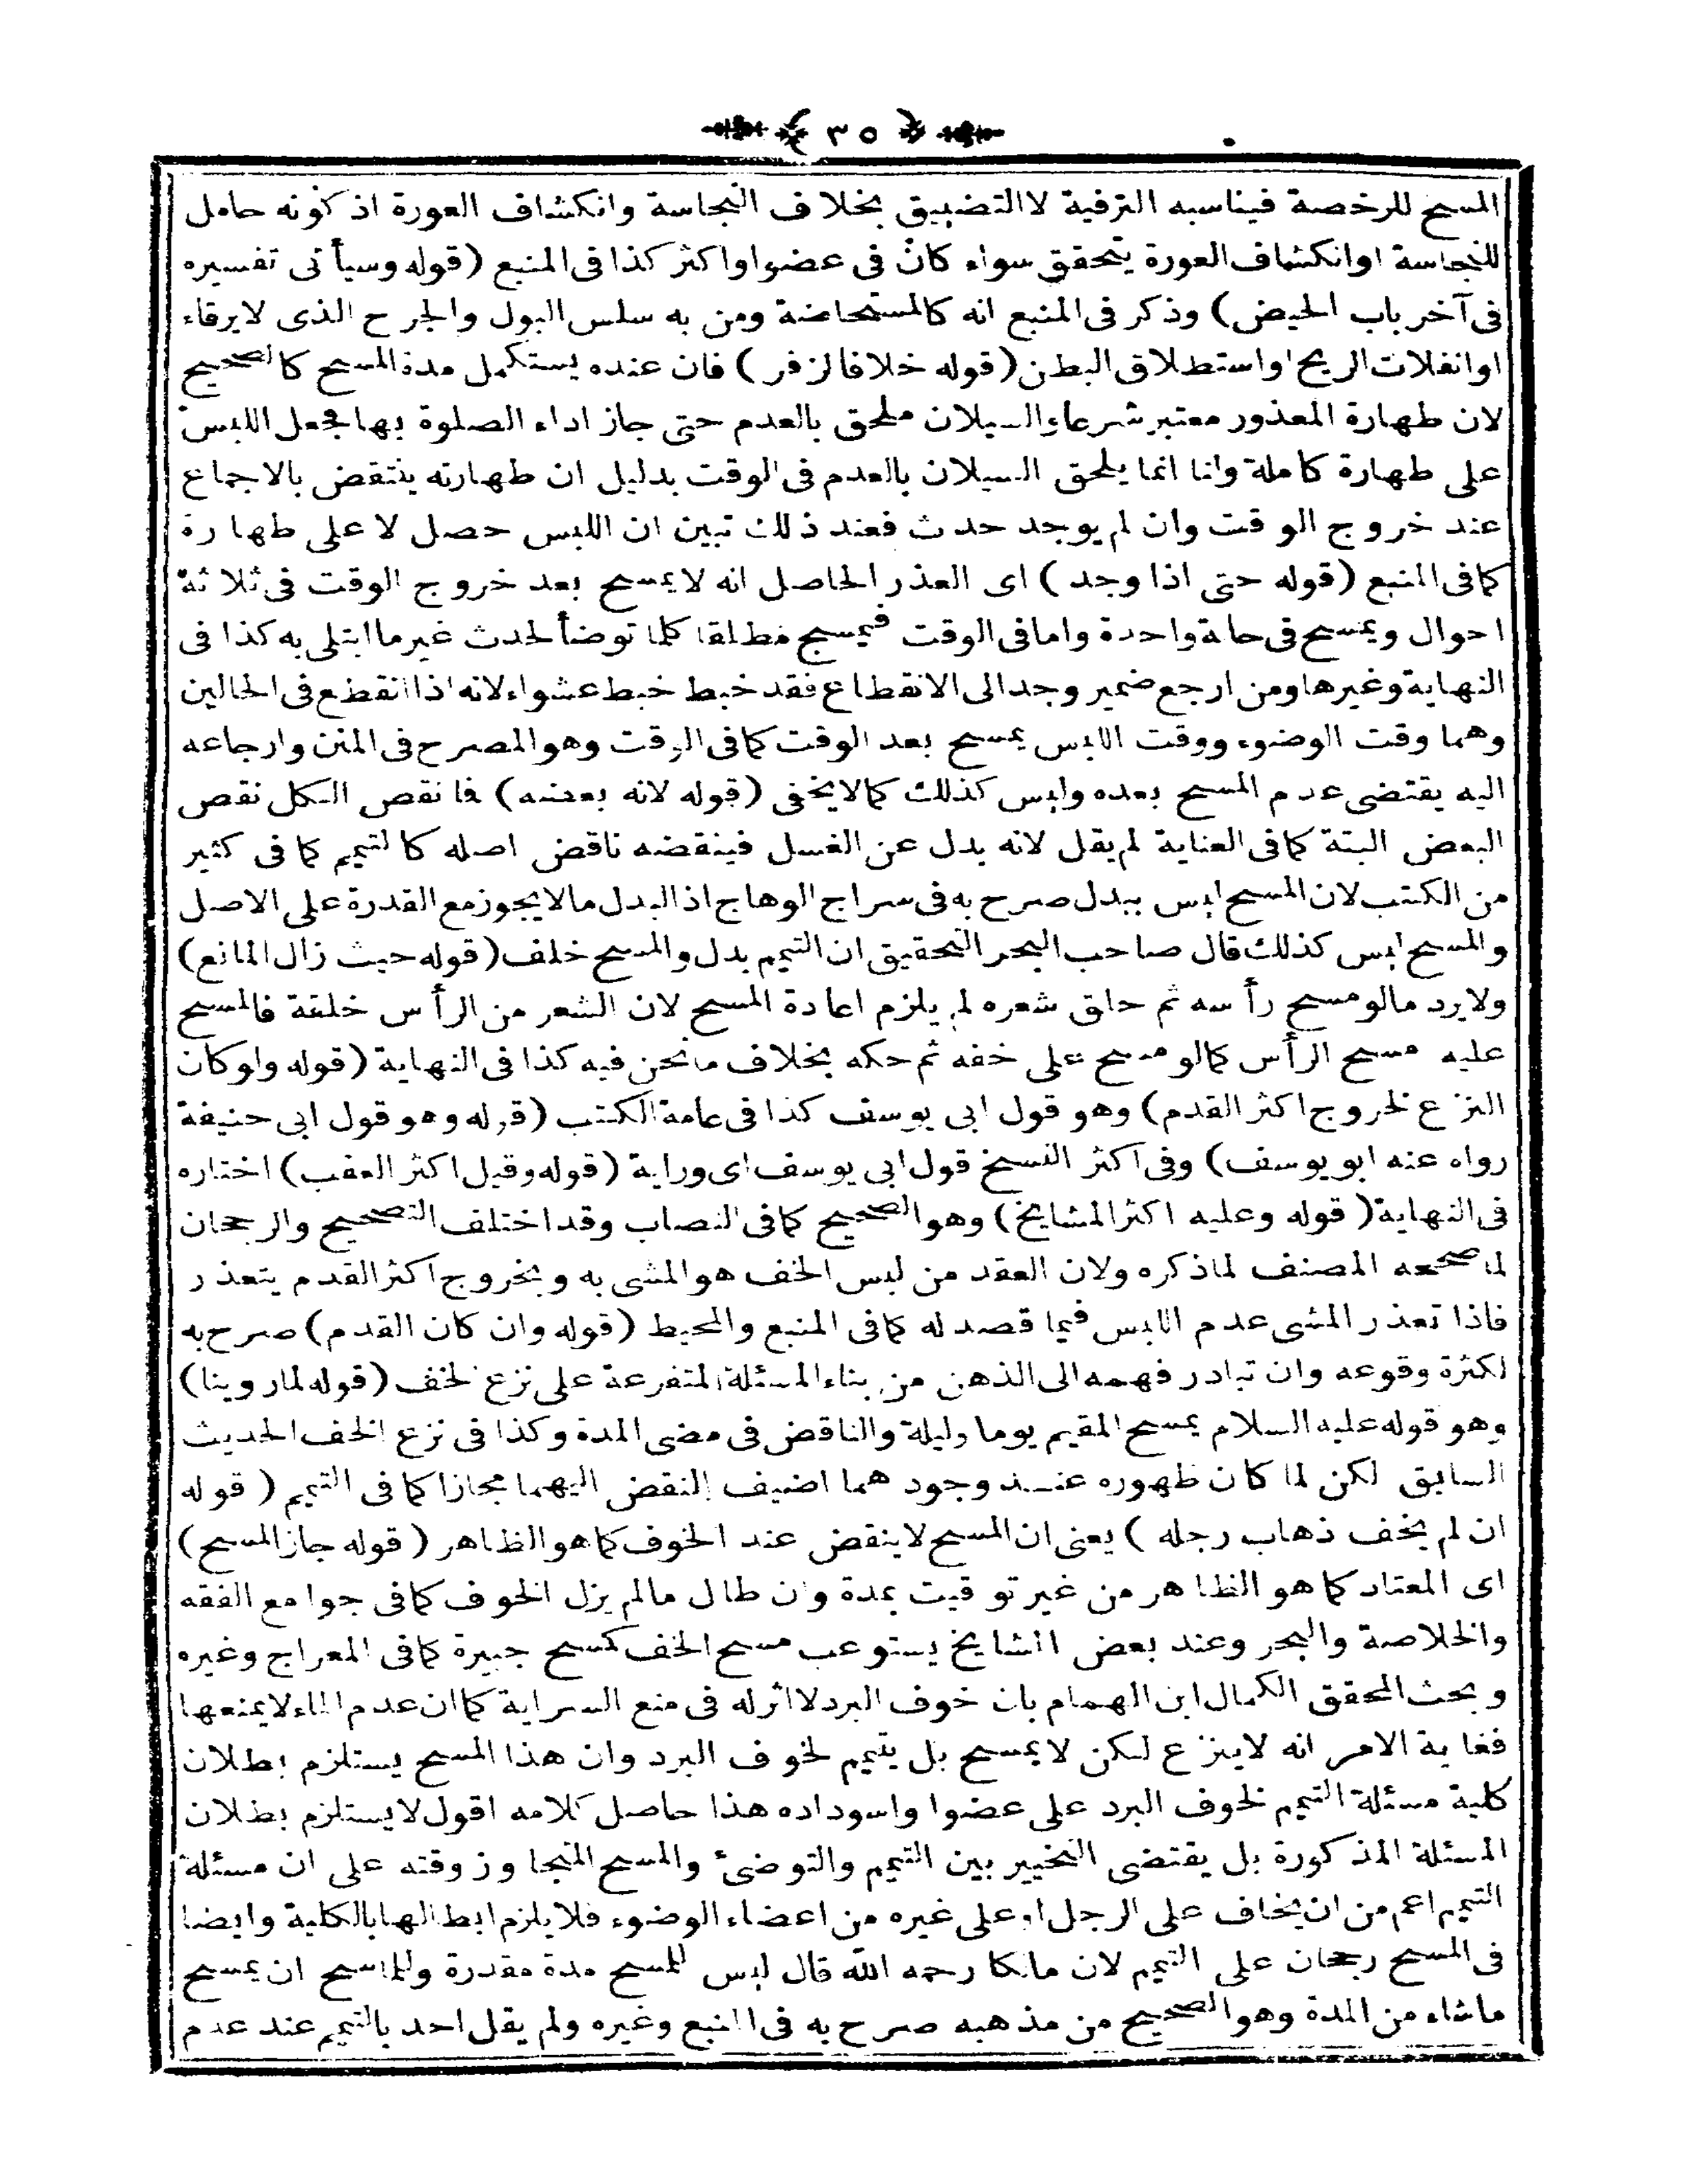 ٣٥
المسح للرخصة فيناسبه الترفية لا التضييق بخلاف النجاسة وانكشاف العورة اذ كونه حامل
للنجاسة اوانكشاف العورة يتحقق سواء كان فى عضو اواكثر كذا فى المنبع (قوله وسيأتى تفسيره
فى آخر باب الحيض) وذكر فى المنبع انه كالمستحاضة ومن به سلس البول والجرح الذى لايرقاء
اوانفلات الريح اواستطلاق البطن (قوله خلافا لزفر) فان عنده يستكمل مدة المسح كالصحيح
لان طهارة المعذور معتبر شرعا والسيلان ملحق بالعدم حتى جاز اداء الصلوة بها فجعل اللبس
على طهارة كاملة وانا انما يلحق السيلان بالعدم فى الوقت بدليل ان طهارته ينتقض بالاجماع
عند خروج الوقت وان لم يوجد حدث فعند ذلك تبين ان اللبس حصل لا على طهارة
كمافى المنبع (قوله حتى اذا وجد) اى العذر الحاصل انه لايمسح بعد خروج الوقت فى ثلاثة
احوال ويمسح فى حالة واحدة وامافى الوقت فيمسح مطلقا كلما توضأ لحدث غير ما ابتلى به كذا فى
النهاية وغيرها ومن ارجع ضمير وجد الى الانقطاع فقد خبط خبط عشواء لانه اذا انقطع فى الحالين
وهما وقت الوضوء ووقت اللبس يمسح بعد الوقت كمافى الوقت وهو المصرح فى المتن وارجاعه
اليه يقتضى عدم المسح بعده وليس كذلك كمالايخفى (قوله لانه بعضه) فانقص الكل نقص
البعض البتة كمافى العناية لم يقل لانه بدل عن الغسل فينقضه ناقض اصله كالتيمم كما فى كثير
من الكتب لان المسح ليس ببدل صرح به فى سراج الوهاج اذ البدل مالايجوز مع القدرة على الاصل
والمسح ليس كذلك قال صاحب البحر التحقيق ان التيمم بدل والمسح خلف (قوله حيث زال المانع)
ولايرد مالو مسح رأسه ثم حلق شعره لم يلزم اعادة المسح لان الشعر من الرأس خلقة فالمسح
عليه مسح الرأس كمالو مسح على خفه ثم حكه بخلاف مانحن فيه كذا فى النهاية (قوله ولوكان
النزع لخروج اكثر القدم) وهو قول ابى يوسف كذا فى عامة الكتب (قوله وهو قول ابى حنيفة
رواه عنه ابو يوسف) وفى اكثر النسخ قول ابى يوسف اى وراية (قوله وقيل اكثر العقب) اختاره
فى النهاية (قوله وعليه اكثر المشايخ) وهو الصحيح كمافى النصاب وقد اختلف التصحيح والرجحان
لما صححه المصنف لماذكره ولان العقد من لبس الخف هو المشى به وبخروج اكثر القدم يتعذر
فاذا تعذر المشى عدم اللبس فيما قصد له كمافى المنبع والمحيط (قوله وان كان القدم) صرح به
لكثرة وقوعه وان تبادر فهمه الى الذهن من بناء المسئلة المتفرعة على نزع لخف (قوله لماروينا)
وهو قوله عليه السلام يمسح المقيم يوما وليلة والناقض فى مضى المدة وكذا فى نزع الخف الحديث
السابق لكن لما كان ظهوره عند وجودهما اضيف النقض اليهما مجازا كما فى التيمم (قوله
ان لم يخف ذهاب رجله) يعنى ان المسح لاينقض عند الخوف كماهو الظاهر (قوله جاز المسح)
اى المعتاد كماهو الظاهر من غير توقيت بمدة وان طال مالم يزل الخوف كمافى جوامع الفقه
والخلاصة والبحر وعند بعض المشايخ يستوعب مسح الخف كمسح جبيرة كمافى المعراج وغيره
وبحث المحقق الكمال ابن الهمام بان خوف البرد لااثرله فى منع السراية كماان عدم الماء لايمنعها
فغاية الامر انه لاينزع لكن لايمسح بل يتيمم لخوف البرد وان هذا المسح يستلزم بطلان
كلية مسئلة التيمم لخوف البرد على عضوا واسوداده هذا حاصل كلامه اقول لايستلزم بطلان
المسئلة المذكورة بل يقتضى التخيير بين التيمم والتوضئ والمسح المتجاوز وقته على ان مسئلة
التيمم اعم من ان يخاف على الرجل او على غيره من اعضاء الوضوء فلايلزم ابطالها بالكلية وايضا
فى المسح رجحان على التيمم لان مالكا رحمه الله قال ليس للمسح مدة مقدرة وللماسح ان يمسح
ماشاء من المدة وهو الصحيح من مذهبه صرح به فى المنبع وغيره ولم يقل احد بالتيمم عند عدم